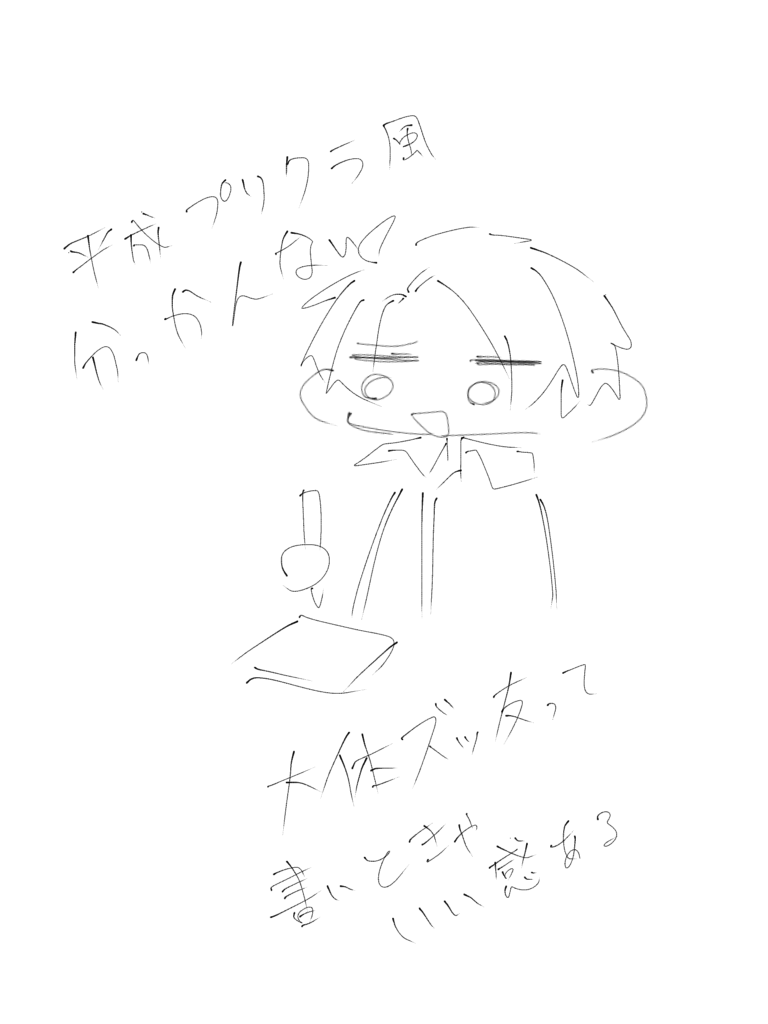 平成プリクラ風
分っかんない
大体ズッ友って
書いときゃ
いい感ある